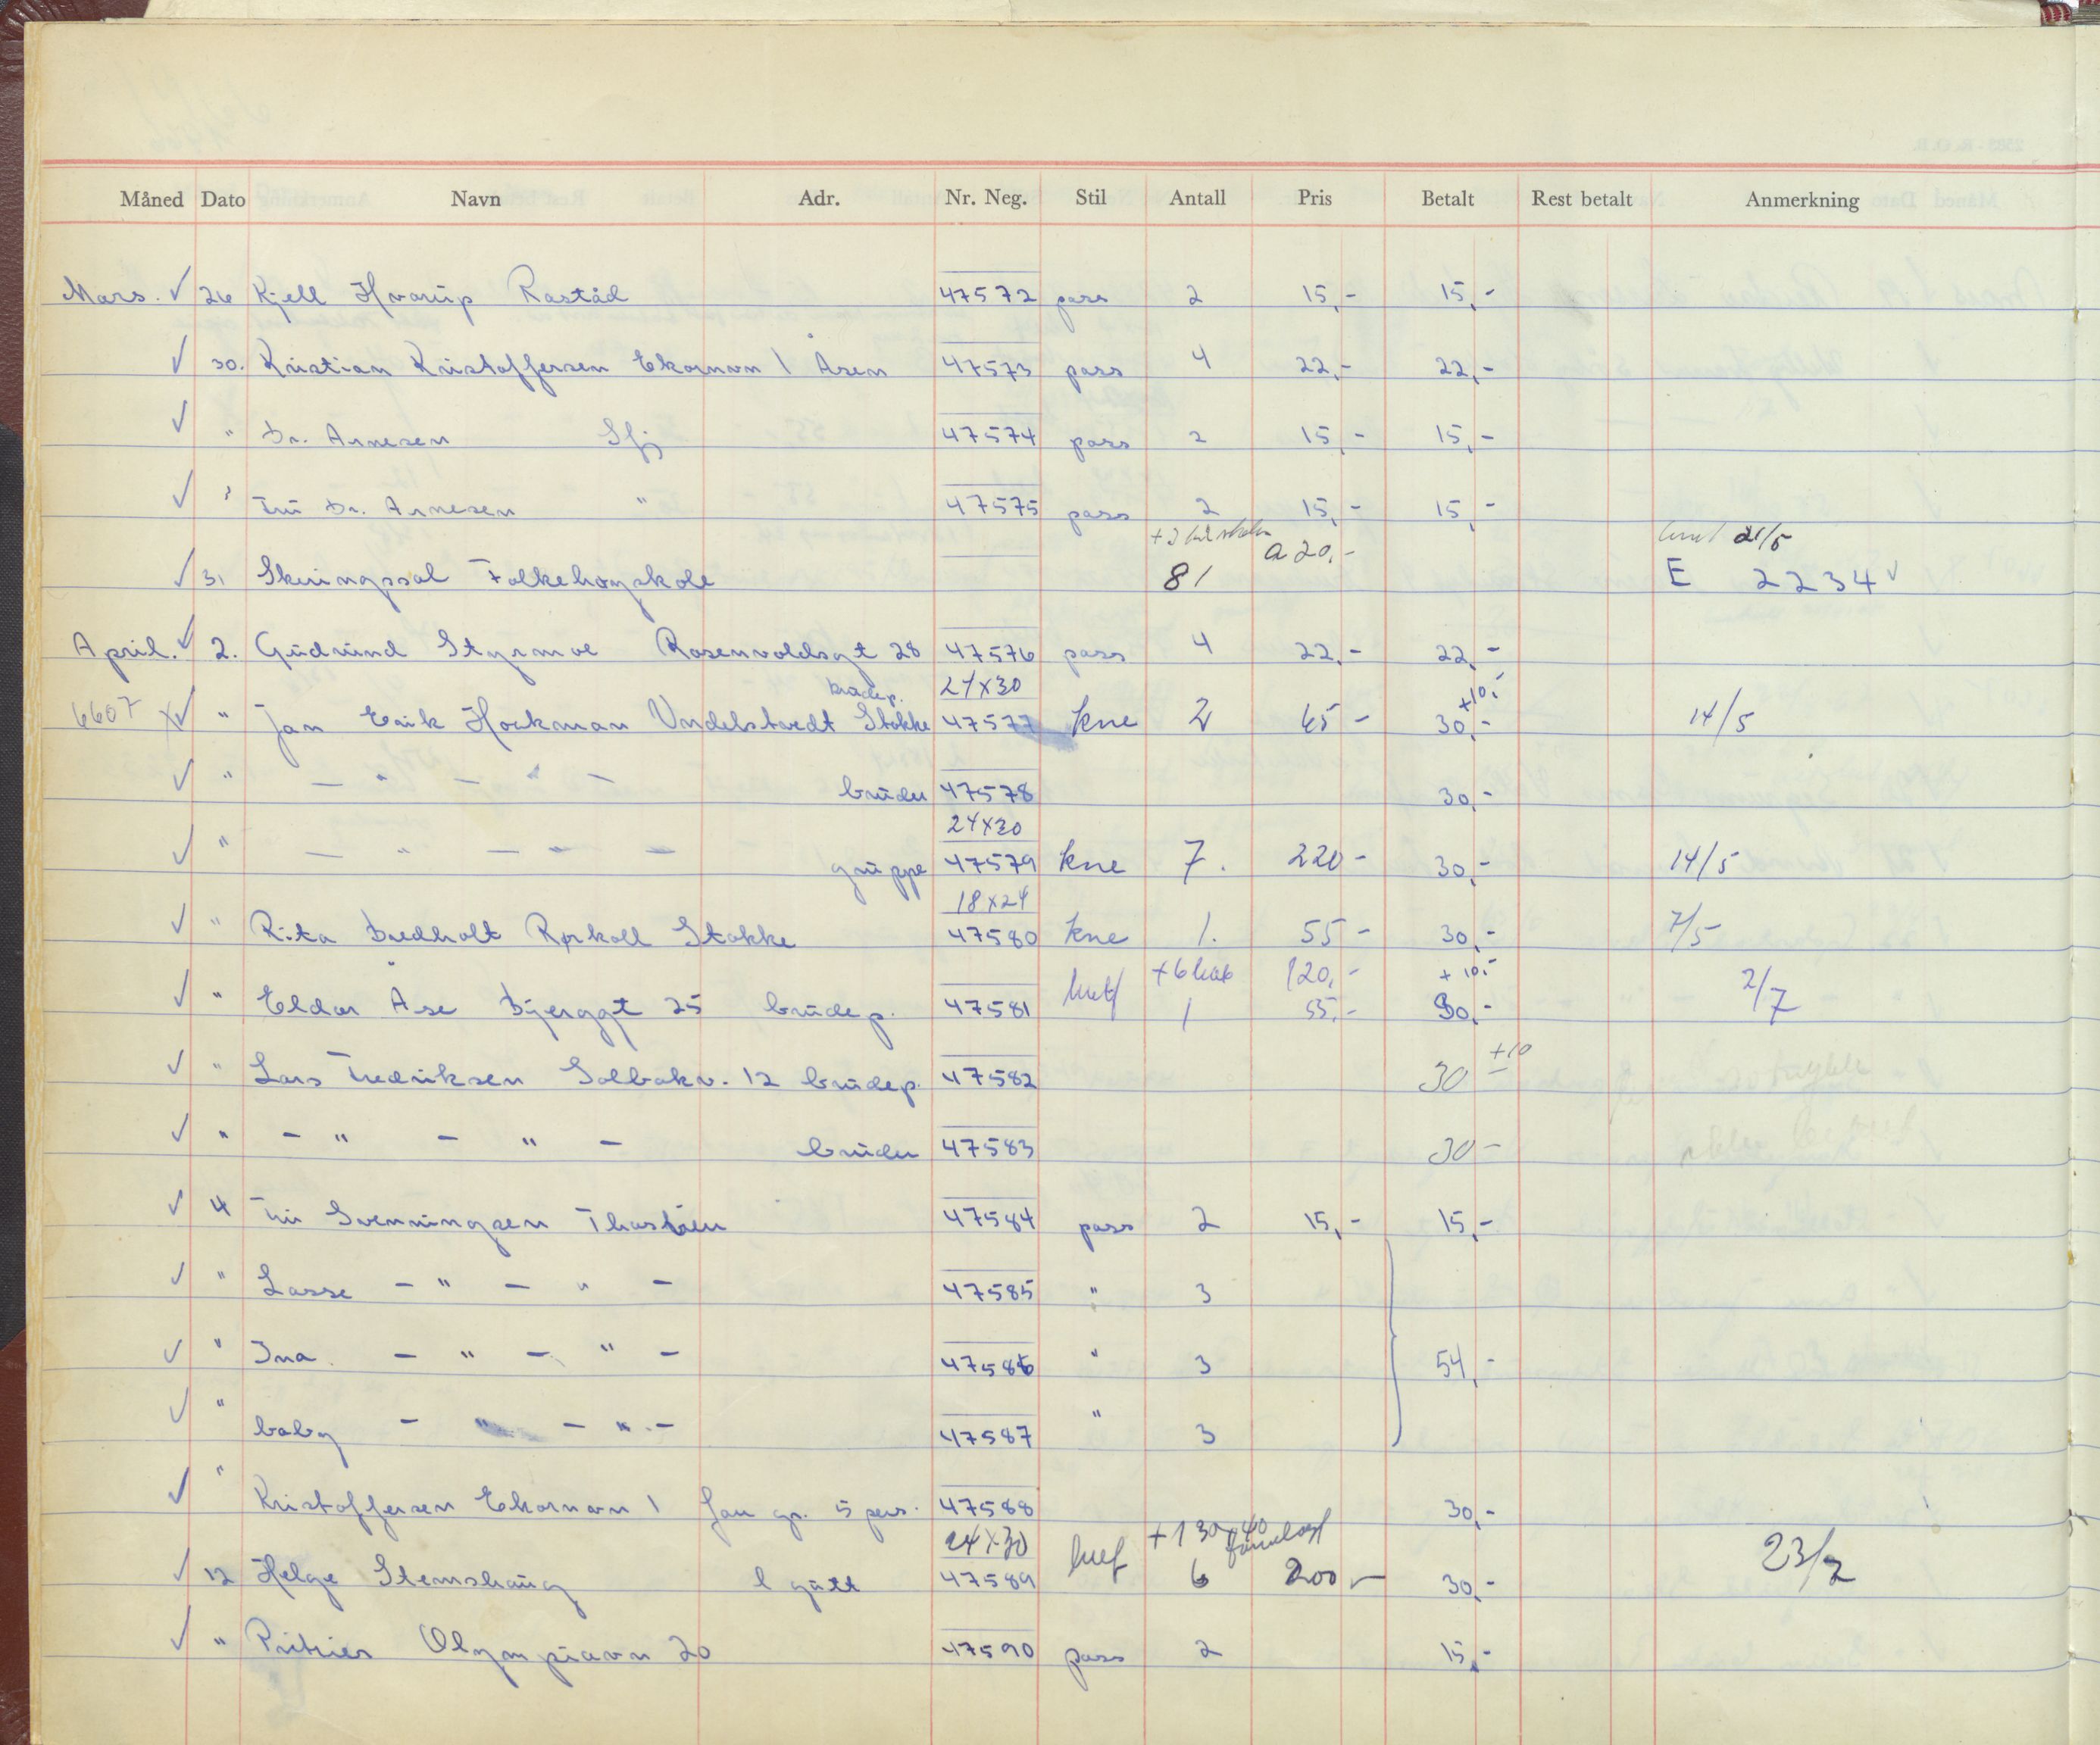 Måned Dato Navn Adr. Nr. Neg. Stil Antall Pris Betalt Rest betalt Anmerkning
Mars. ✓ 26 Kjell Hvarup Rastad 47572 pass 2 15,- 15,-
✓ 30. Kristian Kristoffersen Ekornvn 1 Åsen 47573 pass 4 22,- 22,-
✓ " Dr. Arnesen Sfj 47574 pass 2 15,- 15,-
✓ " Fru Dr. Arnesen " 47575 pass 2 15,- 15,-
a 20,- 21/5
✓ 31 Skiringssal Folkehøgskole 81 E 2234 ✓
April. ✓ 2. Gudrund Styrmoe Rosenvoldsgt 28 47576 pass 4 22,- 22,-
brudep. 24x30 +10,-
6607 x✓ " Jan Erik Hockman Undelstvedt Stokke 47577 kne 2 65- 30,- 14/5
✓ " - " - " - bruden 47578 30,-
24x30
✓ " - " - " - gruppe 47579 kne 7. 220- 30,- 14/5
18x24
✓ " Rita Bredholt Rørkoll Stokke 47580 kne 1. 55- 30,- 7/5
+6 kab 120,- +10,-
✓ " Eldar Åse Bjerggt 25 brudep. 47581 1 55,- 30,- 2/7
+10
✓ " Lars Fredriksen Solbakv. 12 brudep. 47582 30
✓ " - " - " - bruden 47583 30-
✓ 4 Fru Svenningsen Thorstrien 47584 pass 2 15,- 15,-
✓ " Lasse - " - " - 47585 " 3
✓ " Ina - " - " - 47586 " 3 54,-
✓ " baby - " - " - 47587 " 3
✓ " Kristoffersen Ekornvn 1 fam gr. 5 pers. 47588 30,-
24x30 +1 30x40
✓ 12 Helge Stemshaug l gutt 47589 6 200- 30,- 23/7
✓ " Olympiavn 20 47590 pass 2 15,-